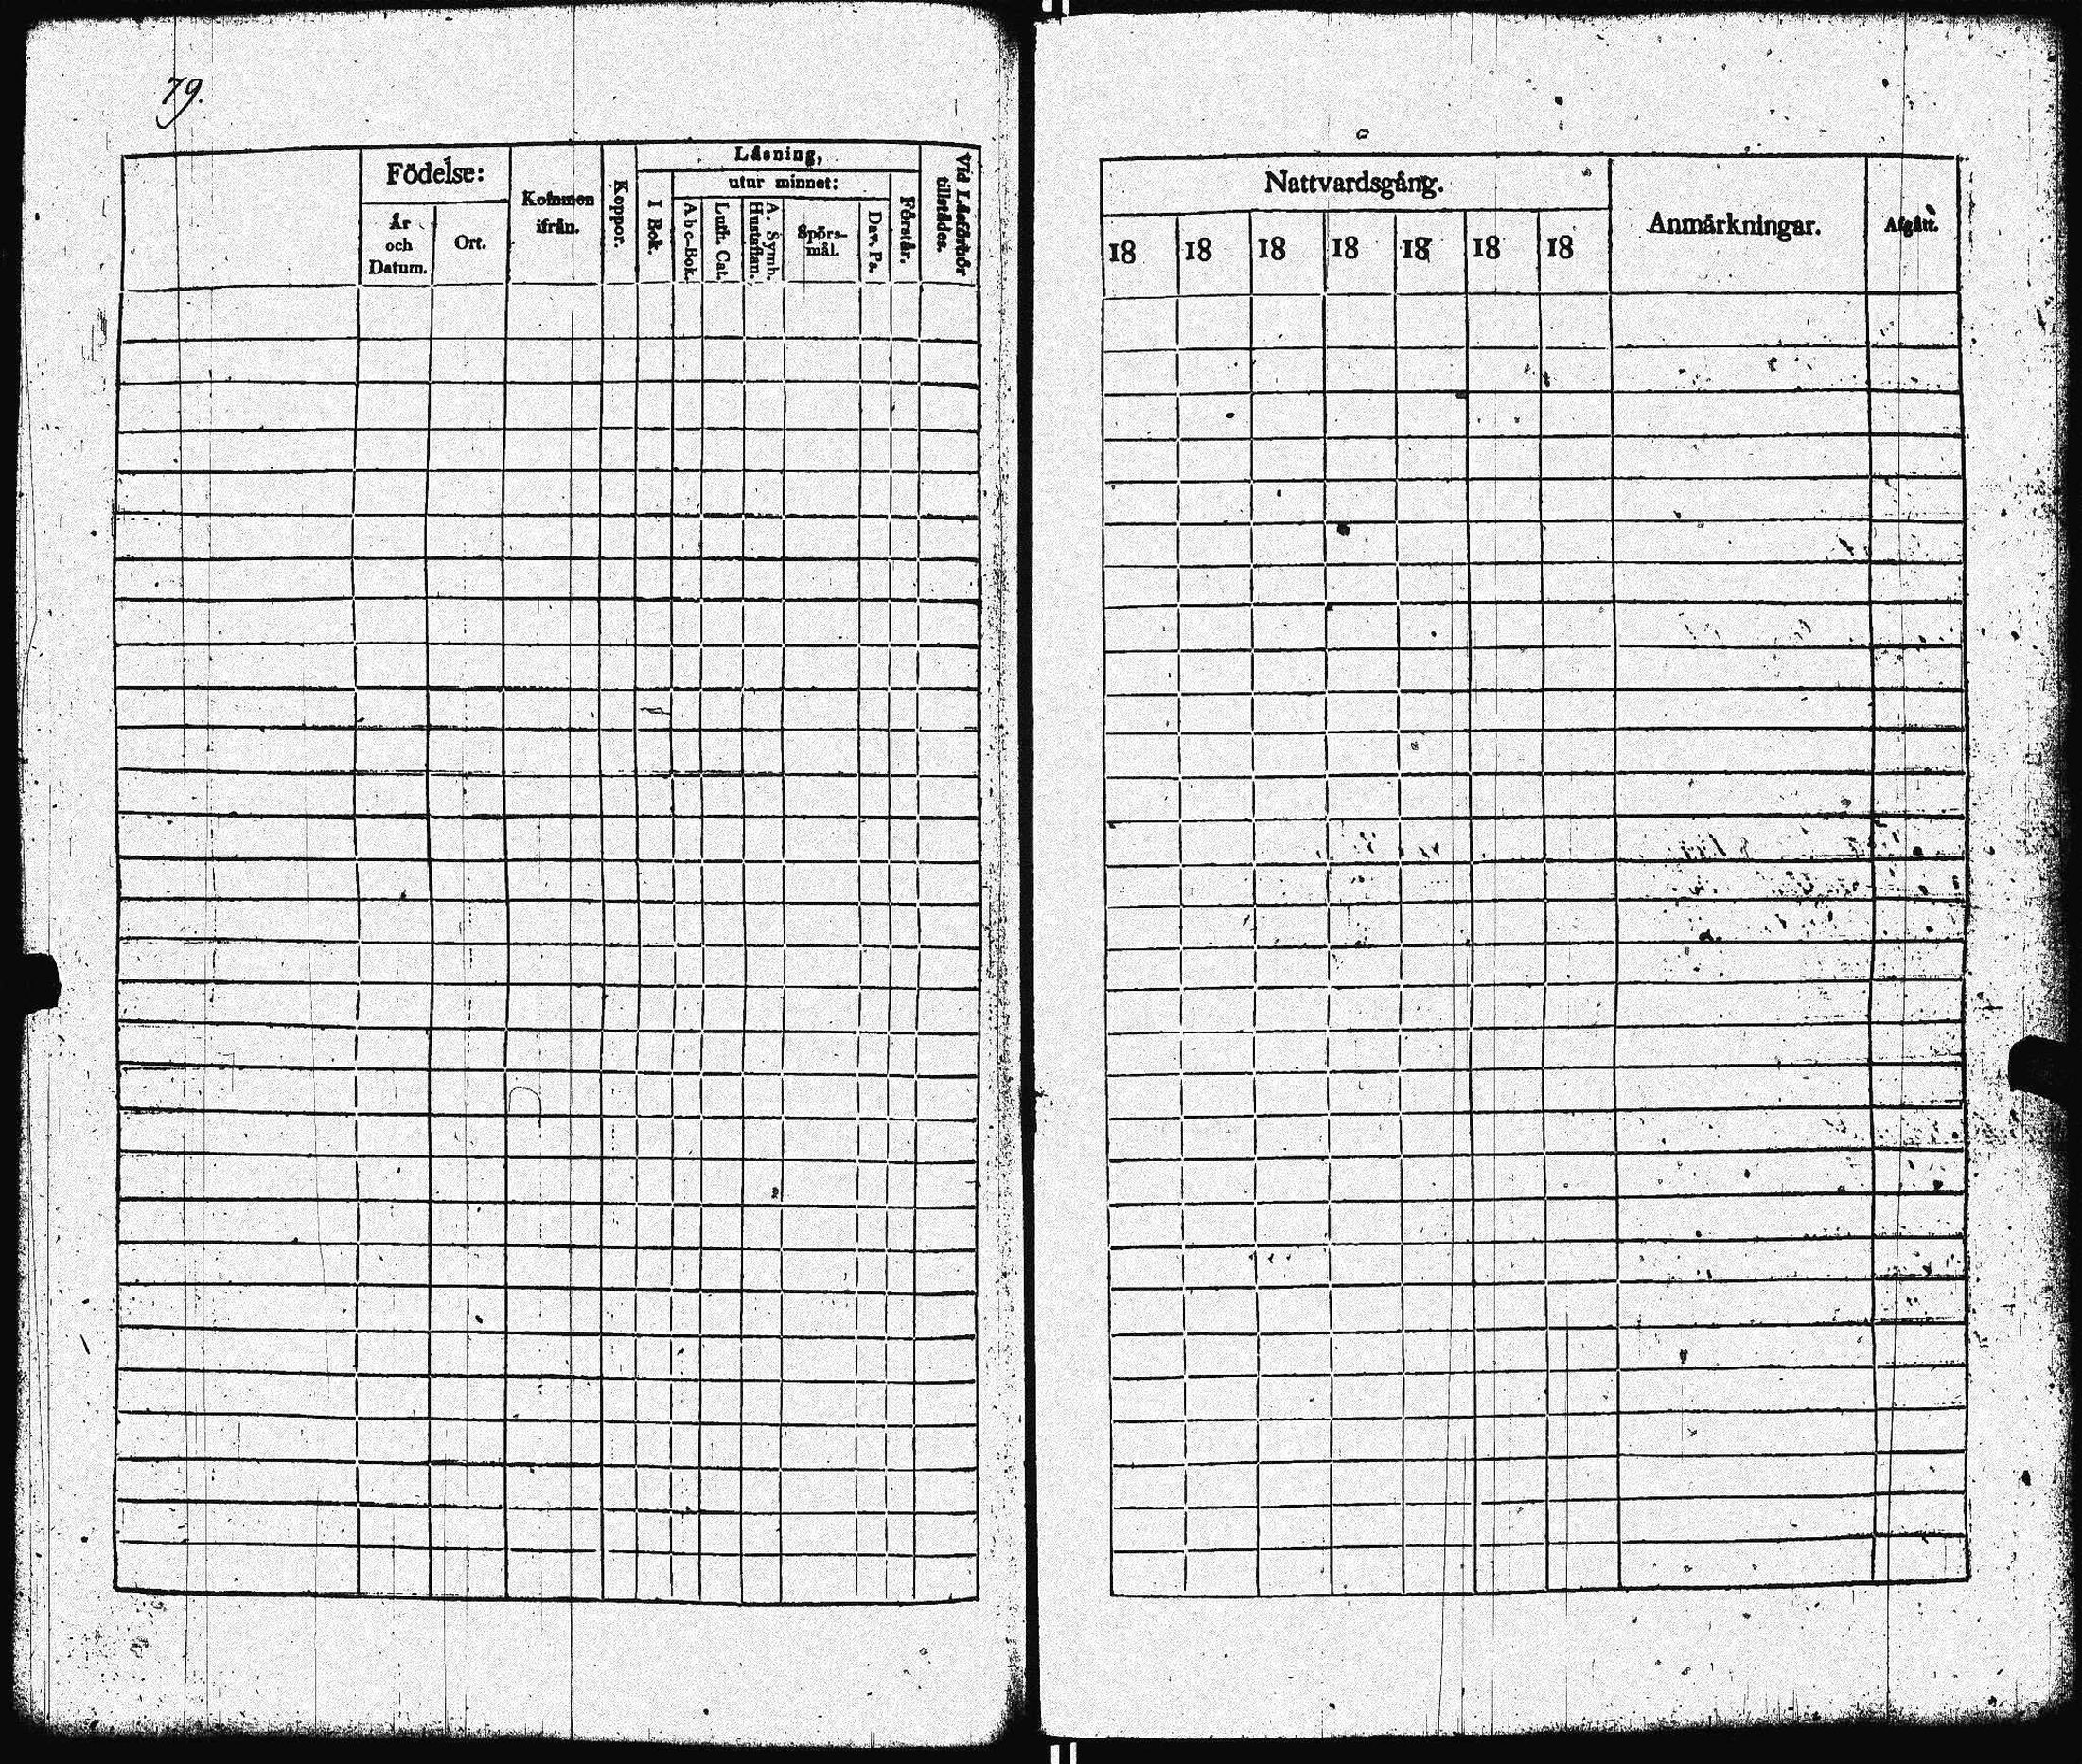 79.
Födelse:
År
och
Datum.
Ort.
Kommen
ifrån.
Koppor.
Läsning,
I Bok.
utur minnet:
Abc-Bok.
Luth. Cat.
A. Symb.
Hustaflan.
Spörs-
mål.
Dav. Ps.
Förstår.
Vid Läsförhör
tillstädes.
Nattvardsgång.
18 18 18 18 18 18 18
Anmärkningar.
Afgått.